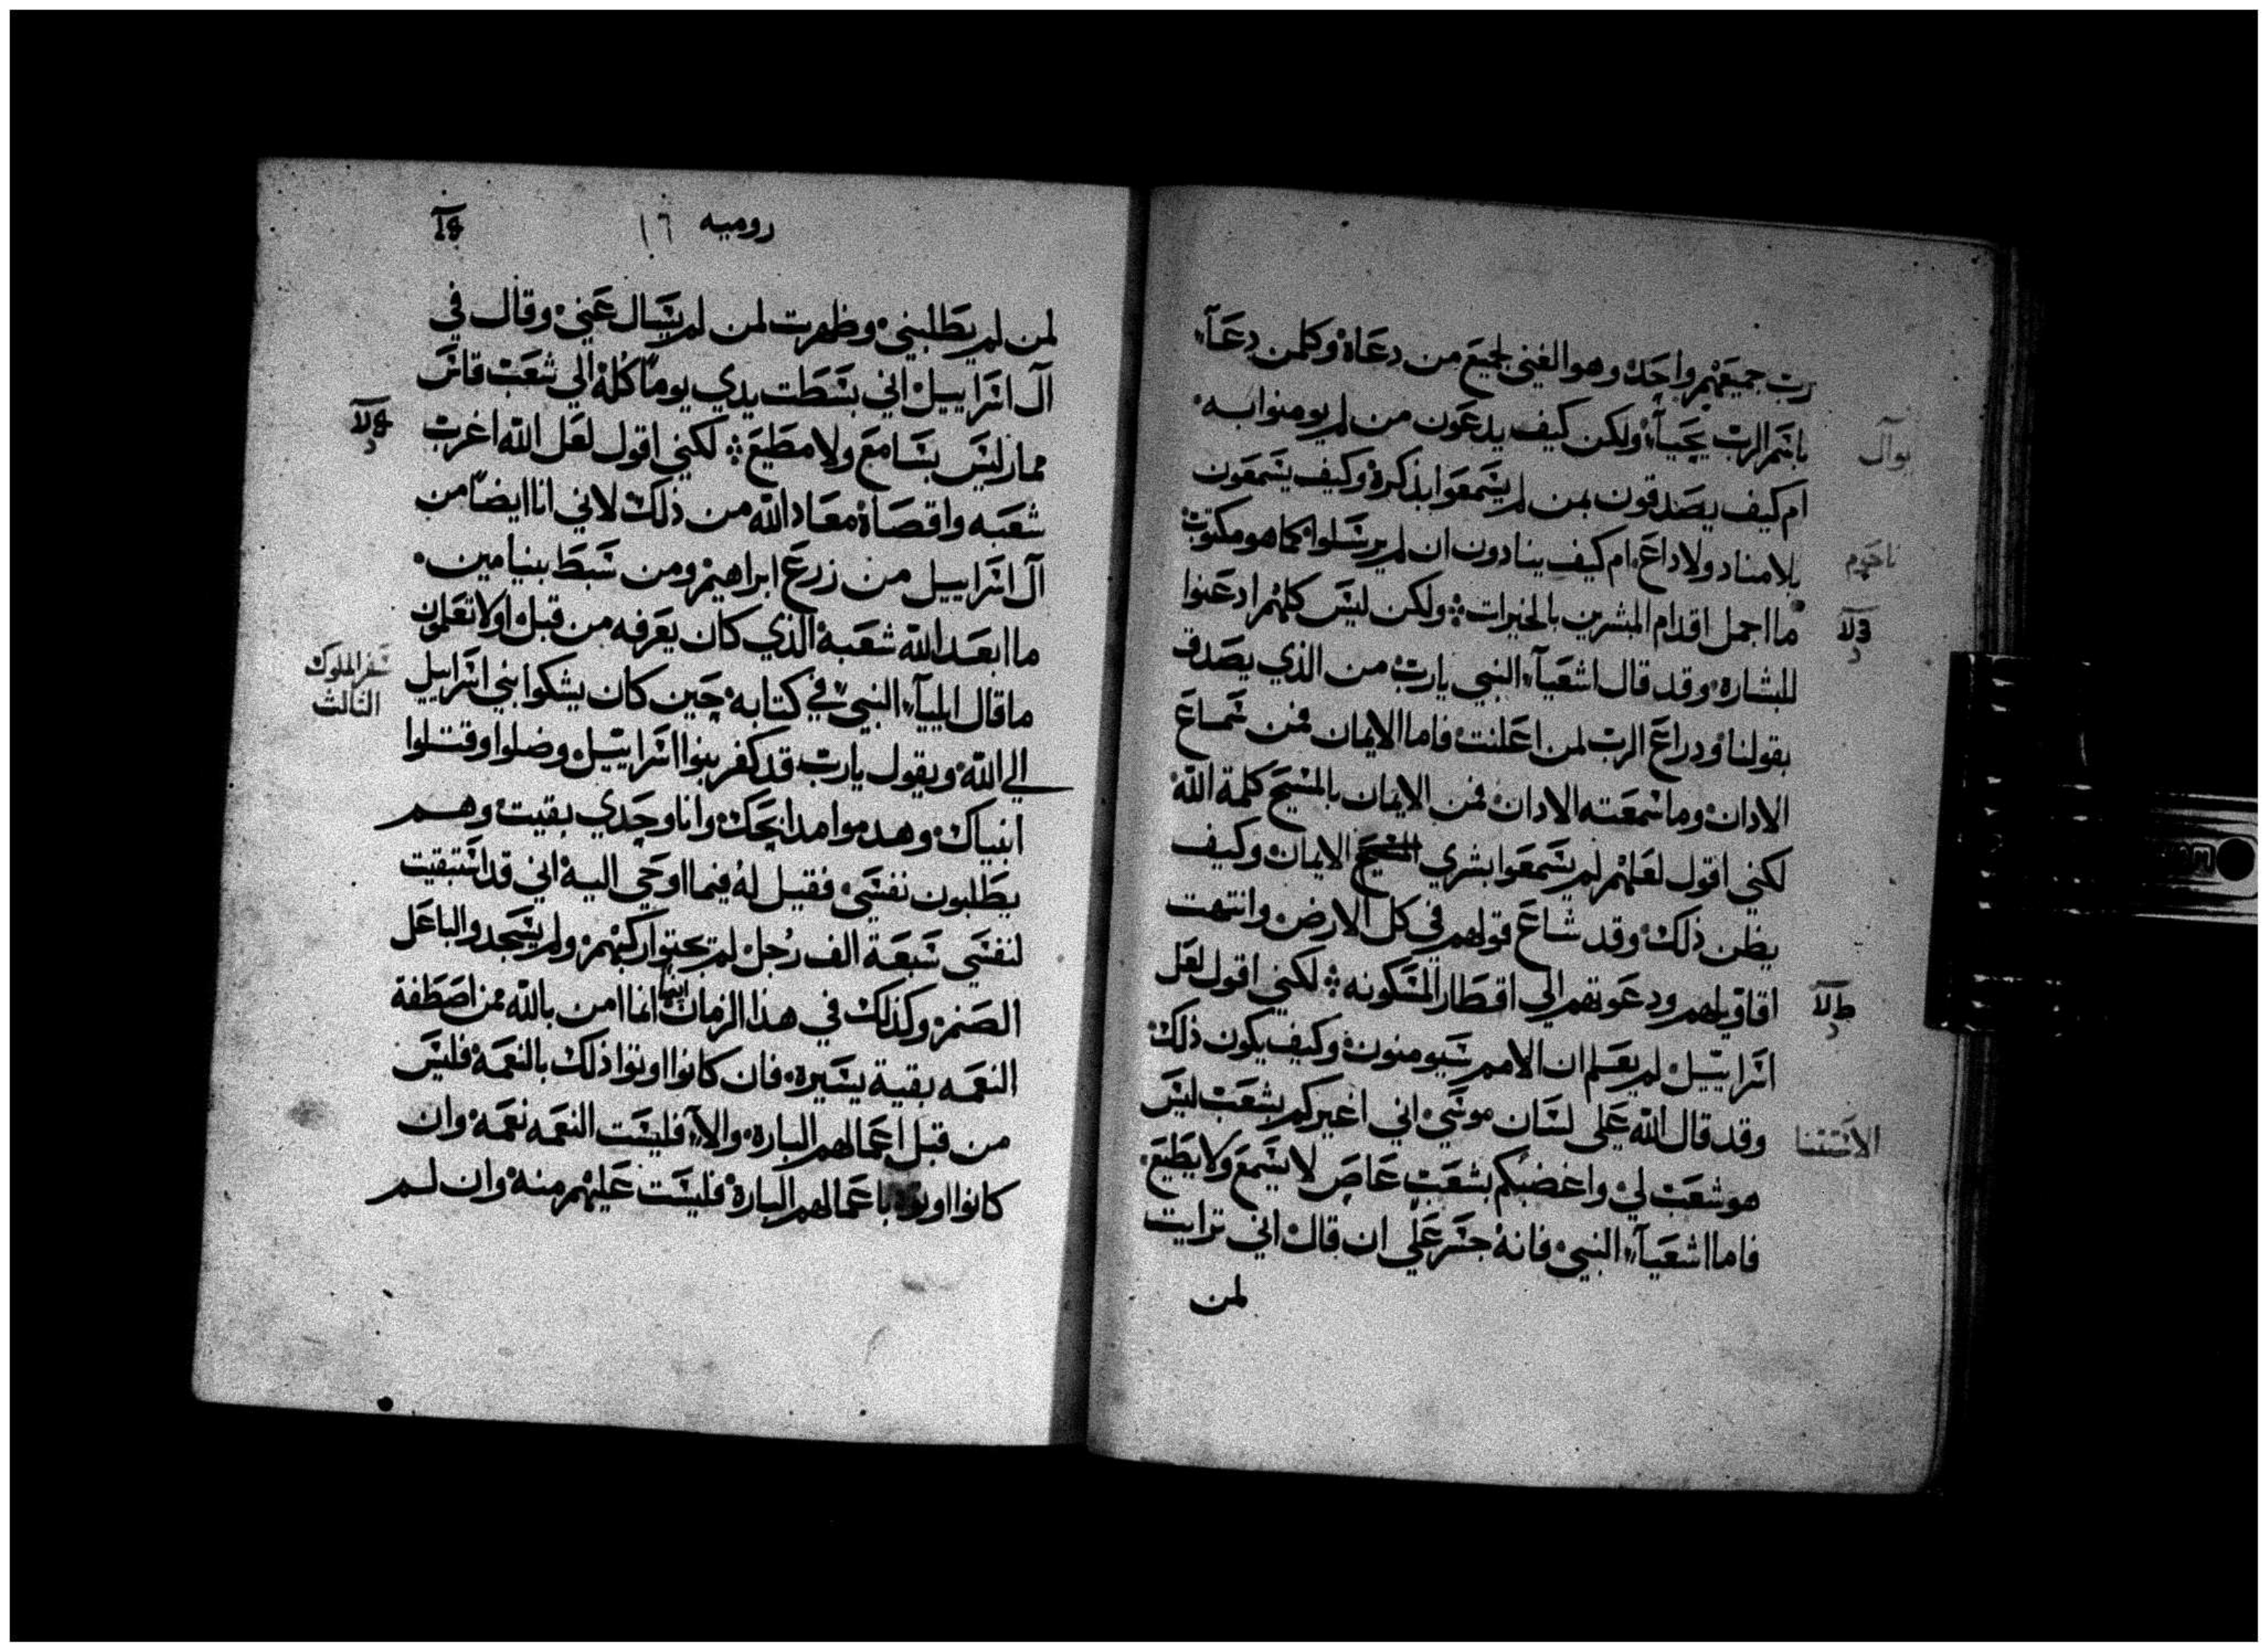 رب جميعهم واحد وهو الغني لجميع من دعاه وكلمن دعآء
باسم الرب يحيآء ولكن كيف يدعون من لم يومنوا به
يوآل
ام كيف يصدقون بمن لم يسمعوا بذكره وكيف يسمعون
بلا مناد ولا داع ام كيف ينادون ان لم يرسلوا كما هو مكتوب
ناحوم
ما اجمل اقدام المبشرين بالخيرات ولكن ليس كلهم ادعنوا
للبشاره وقد قال اشعيآء النبي يارب من الذي يصدق
بقولنا ودراع الرب لمن اعلنت فاما الايمان فمن سماع
الادان وما سمعته الادان فمن الايمان بالمسيح كلمة الله
لكني اقول لعلهم لم يسمعوا بشري المسيح الايمان وكيف
يظن ذلك وقد شاع قولهم في كل الارض وانتهت
اقاويلهم ودعوتهم الي اقطار المسكونه لكني اقول لعل
اسراييل لم يعلم ان الامم سيومنون وكيف يكون ذلك
وقد قال الله علي لسان موسي اني اغيركم بشعب ليس
الاستتنا
هو شعب لي واغضبكم بشعب عاص لا يسمع ولا يطيع
فاما اشعيآء النبي فانه جسر علي ان قال اني ترايت
لمن
روميه ١٦
لمن لم يطلبني وظهرت لمن لم يسال عني وقال في
آل اسراييل اني بسطت يدي يوماً كله الي شعب قاس
ممار ليس بسامع ولا مطيع لكني اقول لعل الله اغرب
شعبه واقصاه معاد الله من ذلك لاني انا ايضاً من
آل اسراييل من زرع ابراهيم ومن سبط بنيامين
ما ابعد الله شعبه الذي كان يعرفه من قبل اولا تعلمون
ما قال ايليآء النبي في كتابه حين كان يشكوا بني اسراييل
سفر الملوك
الثالث
الي الله ويقول يارب قد كفر بنوا اسراييل وضلوا وقتلوا
انبياك وهدموا مدابحك وانا وحدي بقيت وهم
يطلبون نفسي فقيل له فيما اوحي اليه اني قد استبقيت
لنفسي سبعة الف رجل لم يحنوا ركبهم ولم يسجدوا لباعل
الصنم وكذلك في هذا الزمان ايضا انما امن بالله ممن اصطفة
النعمه بقية يسيره فان كانوا اوتوا ذلك بالنعمه فليس
من قبل اعمالهم الباره والا فليست النعمه نعمه وان
كانوا اوتوا باعمالهم الباره فليست عليهم منه وان لم